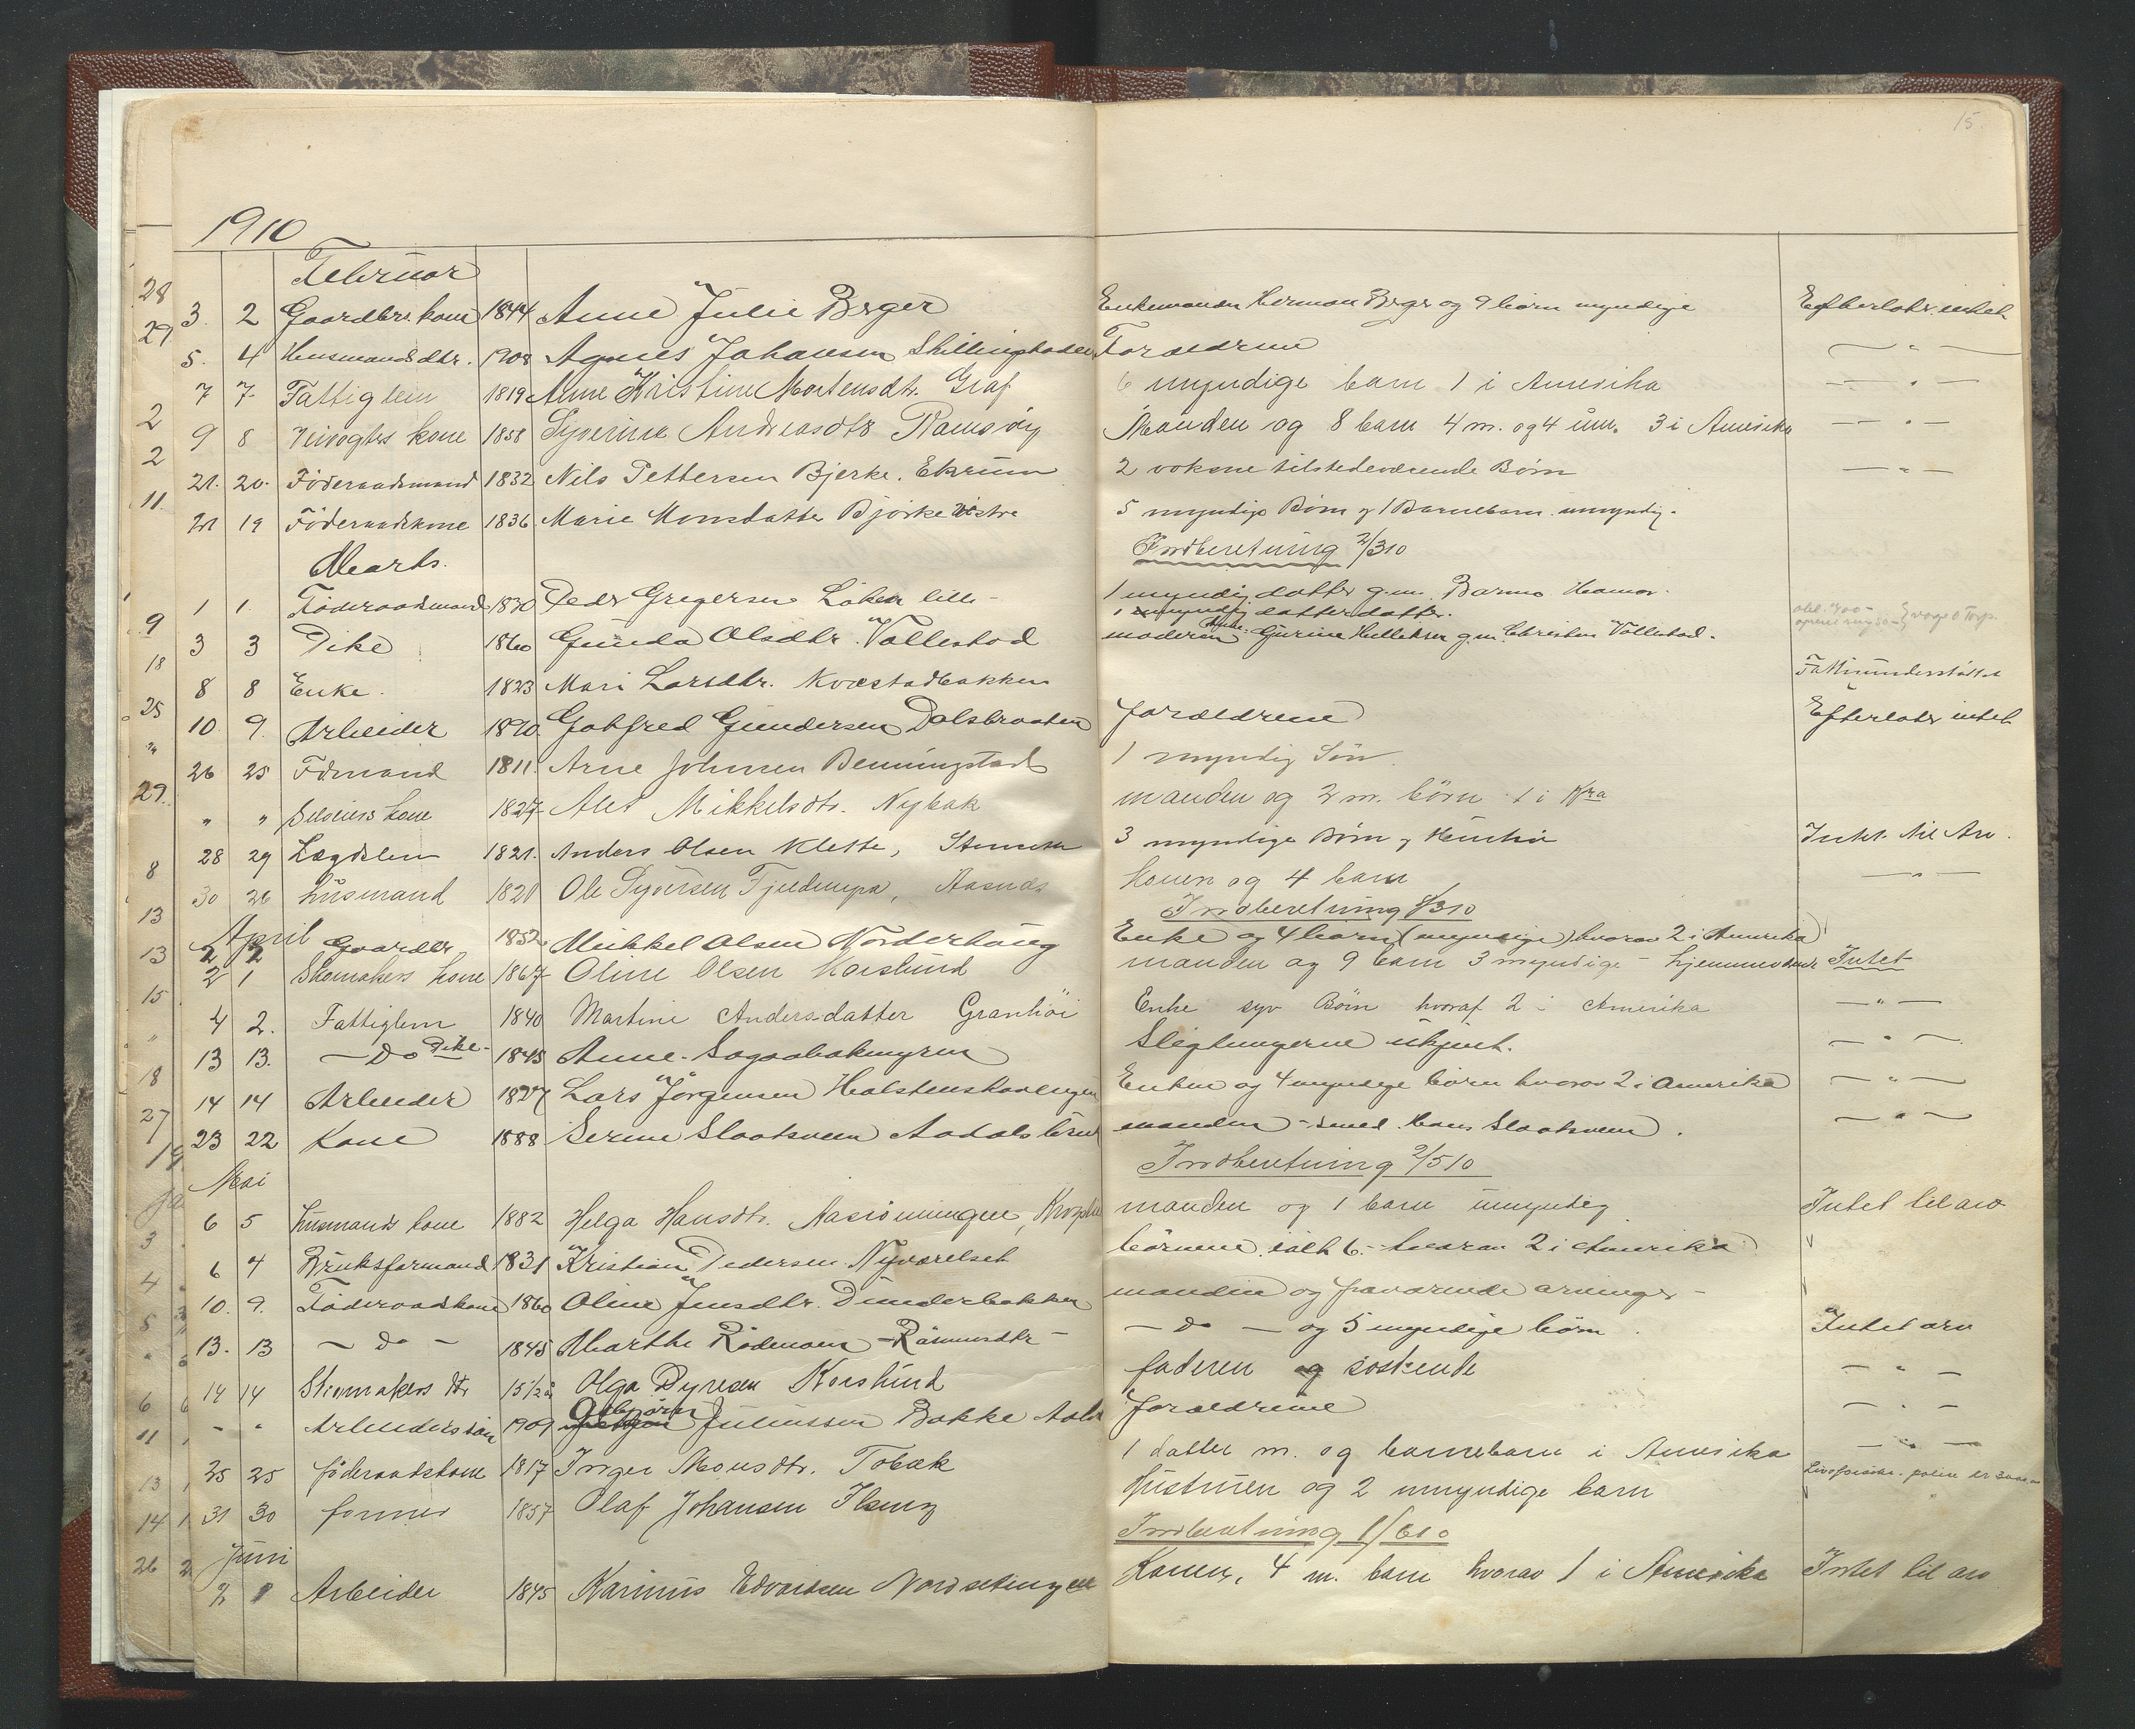 15.
1910
Februar
3. 2 Gaardbr. kone 1844 Anne Julie Berger Enkemanden Herman Berger og 9 børn myndige Efterlader intet
5. 4 Husmandsdtr. 1908 Agnes Johansen Skillingstadei Forældrene — " —
7 7 Fattiglem 1819 Anne Kristine Mortensdtr. Graf 6 myndige barn 1 i Amerika — " —
9 8 Veivogters kone 1858 Syverine Andreasdtr Ramsøy Manden og 8 barn 4 m. og 4 um. 3 i Amerika — " —
21. 20. Föderaadsmand 1832 Nils Pettersen Bjerke, Ekrum 2 voksne tilstedeværende Børn — " —
21 19 Föderaadskone 1836 Marie Monsdatter Bjørke Vestre 5 myndige Børn og 1 Barnebarn umyndig.
Indberetning 2/3 10
Marts.
1 1. Föderaadsmand 1830 Peder Gregersen Løken lille - 1 myndig datter g.m. Hamar.
1 myndig datterdatter.
3 3 Pike 1860 Gunda Olsdtr. Vollestad moderen Gurine g.m. Christen Vollestad.
8 8 Enke. 1823 Mari Larsdtr. Kvæstadbakken Fattigunderstöttet
10 9. Arbeider 1890 Gotfred Gundersen Dalsbraaten forældrene Efterlader intet
26 25 Fdmand 1811. Arne Johnsen Benningstad 1 myndig Sön.
" " kone 1827 Alet Mikkelsdtr. Nybak manden og 2 m. börn 1 i Kra
28 29 Lægdslem 1821. Anders Olsen Klette, 3 myndige Børn og Hustru Intet til Arv.
30 26 husmand 1821 Ole Syversen Tjeldumpa, Aasnes konen og 4 barn — " —
Indberetning 1/3 10
April
2 2 Gaardbr 1852 Mikkel Olsen Norderhaug Enke og 4 barn (myndige) hvorav 2 i Amerika
2 1 Skomakers kone 1867 Oline Olsen Korslund manden og 9 barn 3 myndige - hjemmeværende Intet
4 2. Fattiglem 1840 Martine Andersdatter Granhöi Enke syv Børn hvoraf 2 i Amerika — " —
13 13. — Do Pike - 1845 Anne Sagaabakmyren Slegtningerne ukjent. — " —
14 14 Arbeider 1827 Lars Jörgensen Holstenskavlingen Enken og 4 myndige börn hvorav 2 i Amerika — " —
23 22 Kone 1888 Serine Slaatsveen Aadals brug manden - smed Hans Slaatsveen. — " —
Indberetning 2/5 10
Mai
6 5 husmands kone 1882 Helga Hansdtr. manden og 1 barn umyndig Intet til arv
6 4 Bruksformand 1831 Kristian Pedersen Nyværelset börnene ialt 6 - hvorav 2 i Amerika
10. 9. Föderaadskone 1860 Oline Jensdtr. Dunderbakken manden og fraværende arvinger -
13. 13 — do — 1845 Marthe Rödmoen - Rasmusdtr - — do — og 5 myndige börn. Intet arv
14 14 Skomakers dtr 15 1/2 år Olga Dyresen Korslund faderen og söskende — " —
- " Arbeiders sön 1909 Julinssen Bakke forældrene — " —
25 25 föderaadskone 1817 Inger Monsdtr. Tobak 1 datter m. og barnebarn i Amerika — " —
31 30 former 1857 Olaf Johansen Ilseng Hustruen og 2 umyndige barn
Indberetning 1/6 10
Juni
2 1 Arbeider 1845 Karinus Edvardsen Nordsetengen Konen, 4 m. barn hvorav 1 i Amerika Intet til arv